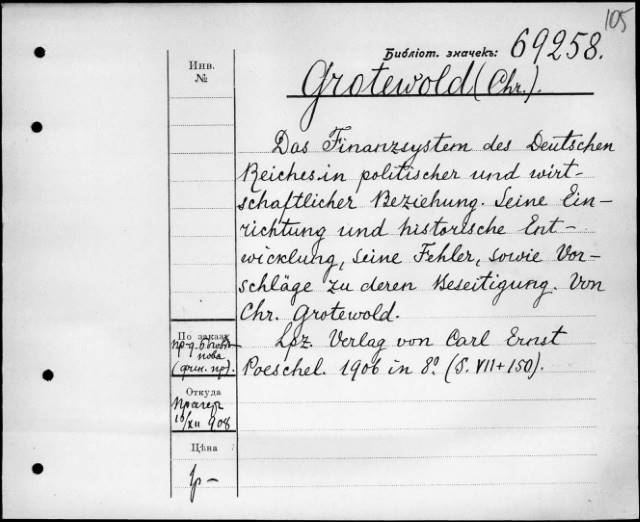 105
Библіот. значекъ: 69258.
Инв.
№
Grotewold (Chr.).
Das Finanzsystem des Deutschen
Reiches in politischer und wirt-
schaftlicher Beziehung. Seine Ein-
richtung und historische Ent-
wicklung, seine Fehler, sowie Vor-
schläge zu deren Beseitigung. Von
Chr. Grotewold.
Lpz. Verlag von Carl Ernst
Poeschel. 1906 in 8º. (S. VII + 150).
По заказу
пова
(фин. пр).
Откуда
Прагеръ
10/XII 908
Цѣна